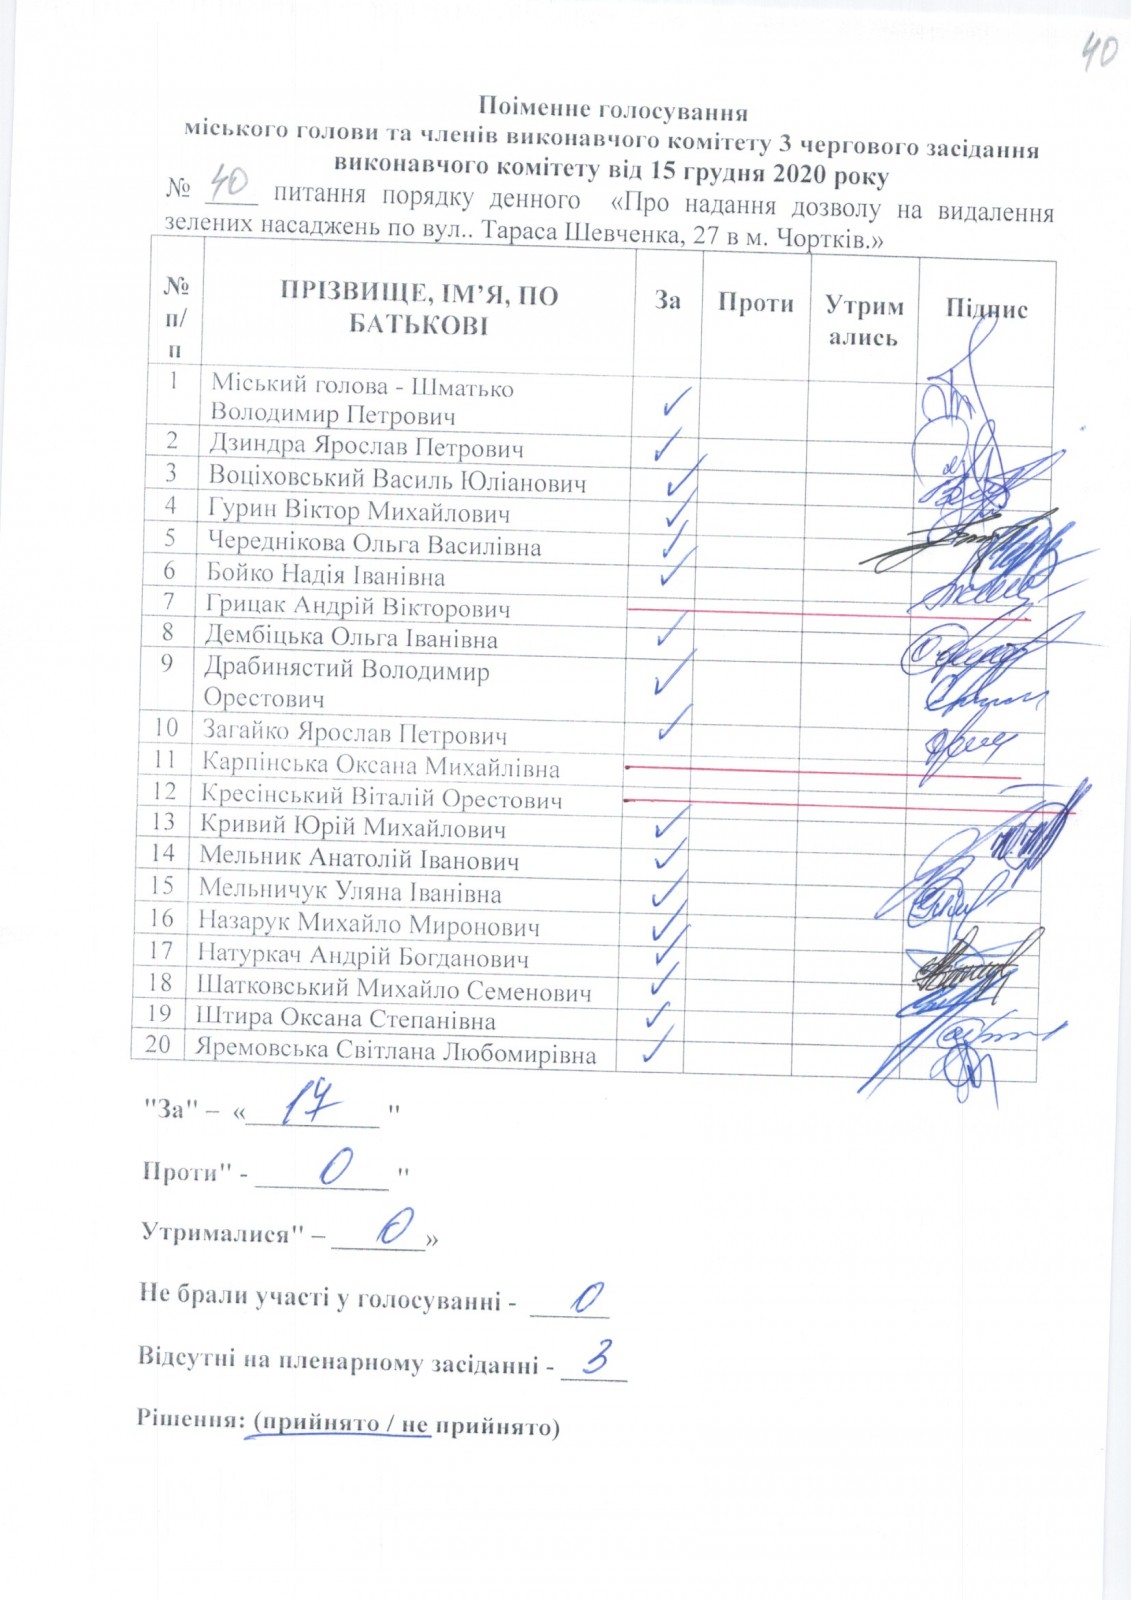 40
Поіменне голосування
міського голови та членів виконавчого комітету 3 чергового засідання
виконавчого комітету від 15 грудня 2020 року
№ 40 питання порядку денного «Про надання дозволу на видалення
зелених насаджень по вул.. Тараса Шевченка, 27 в м. Чортків.»
№ п/п ПРІЗВИЩЕ, ІМ’Я, ПО БАТЬКОВІ За Проти Утримались Підпис
1 Міський голова - Шматько
Володимир Петрович ✓
2 Дзиндра Ярослав Петрович ✓
3 Воціховський Василь Юліанович ✓
4 Гурин Віктор Михайлович ✓
5 Череднікова Ольга Василівна ✓
6 Бойко Надія Іванівна ✓
7 Грицак Андрій Вікторович
8 Дембіцька Ольга Іванівна ✓
9 Драбинястий Володимир
Орестович ✓
10 Загайко Ярослав Петрович ✓
11 Карпінська Оксана Михайлівна
12 Кресінський Віталій Орестович
13 Кривий Юрій Михайлович ✓
14 Мельник Анатолій Іванович ✓
15 Мельничук Уляна Іванівна ✓
16 Назарук Михайло Миронович ✓
17 Натуркач Андрій Богданович ✓
18 Шатковський Михайло Семенович ✓
19 Штира Оксана Степанівна ✓
20 Яремовська Світлана Любомирівна ✓
"За" – « 17 "
Проти" - 0 "
Утрималися" – 0 »
Не брали участі у голосуванні - 0
Відсутні на пленарному засіданні - 3
Рішення: (прийнято / не прийнято)